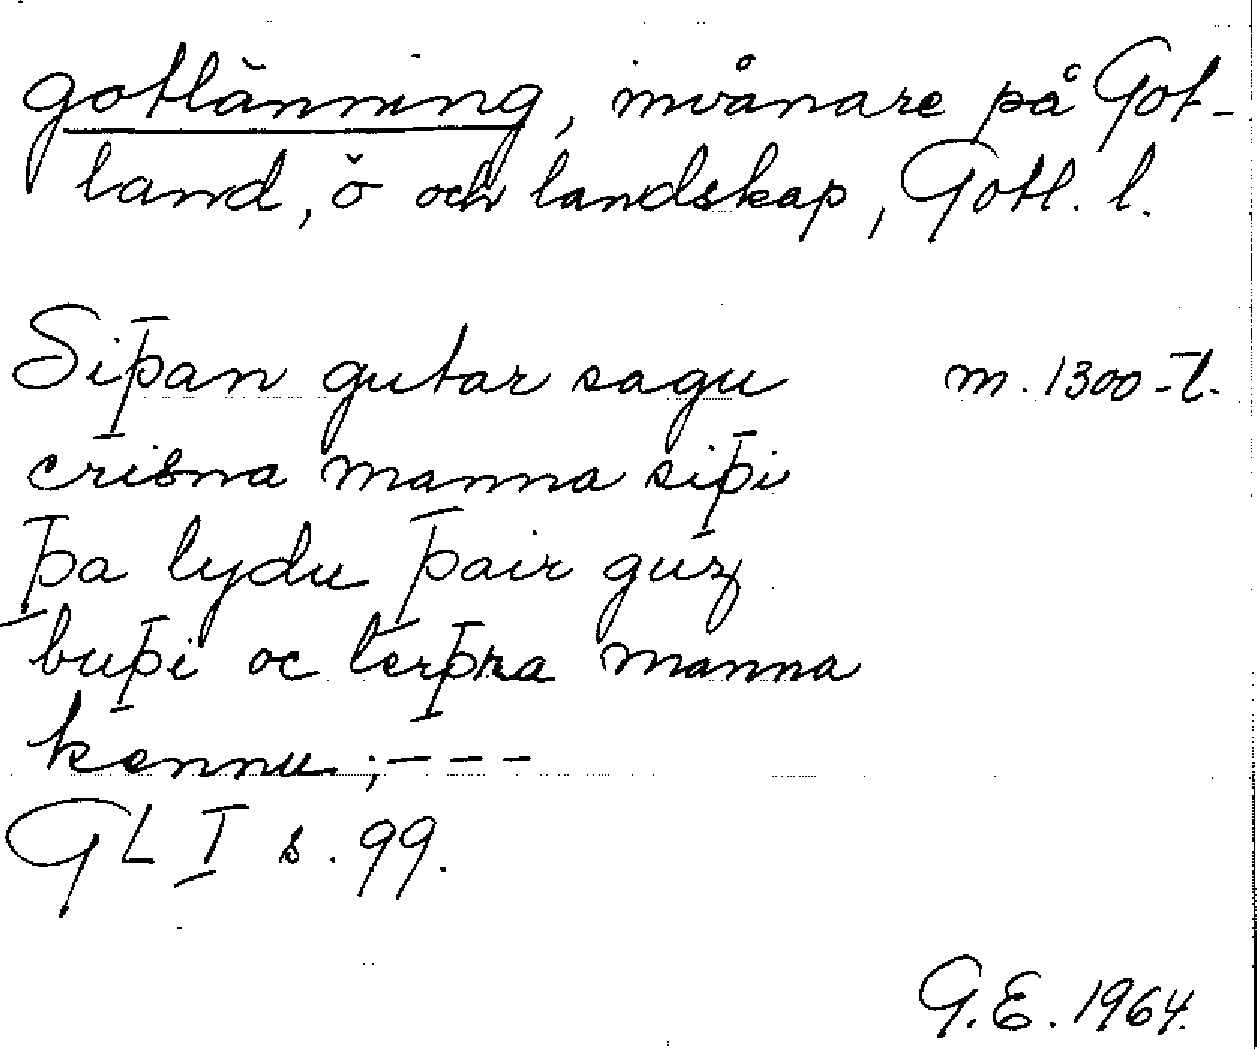 gotlänning, invånare på Got-
land, ö och landskap, Gotl. l.
Siþan gutar sagu m. 1300-t.
crisna manna siþi
þa lydu þair guz
buþi oc lerþra manna
kennu ;---
GL I s. 99.
G.E. 1964.